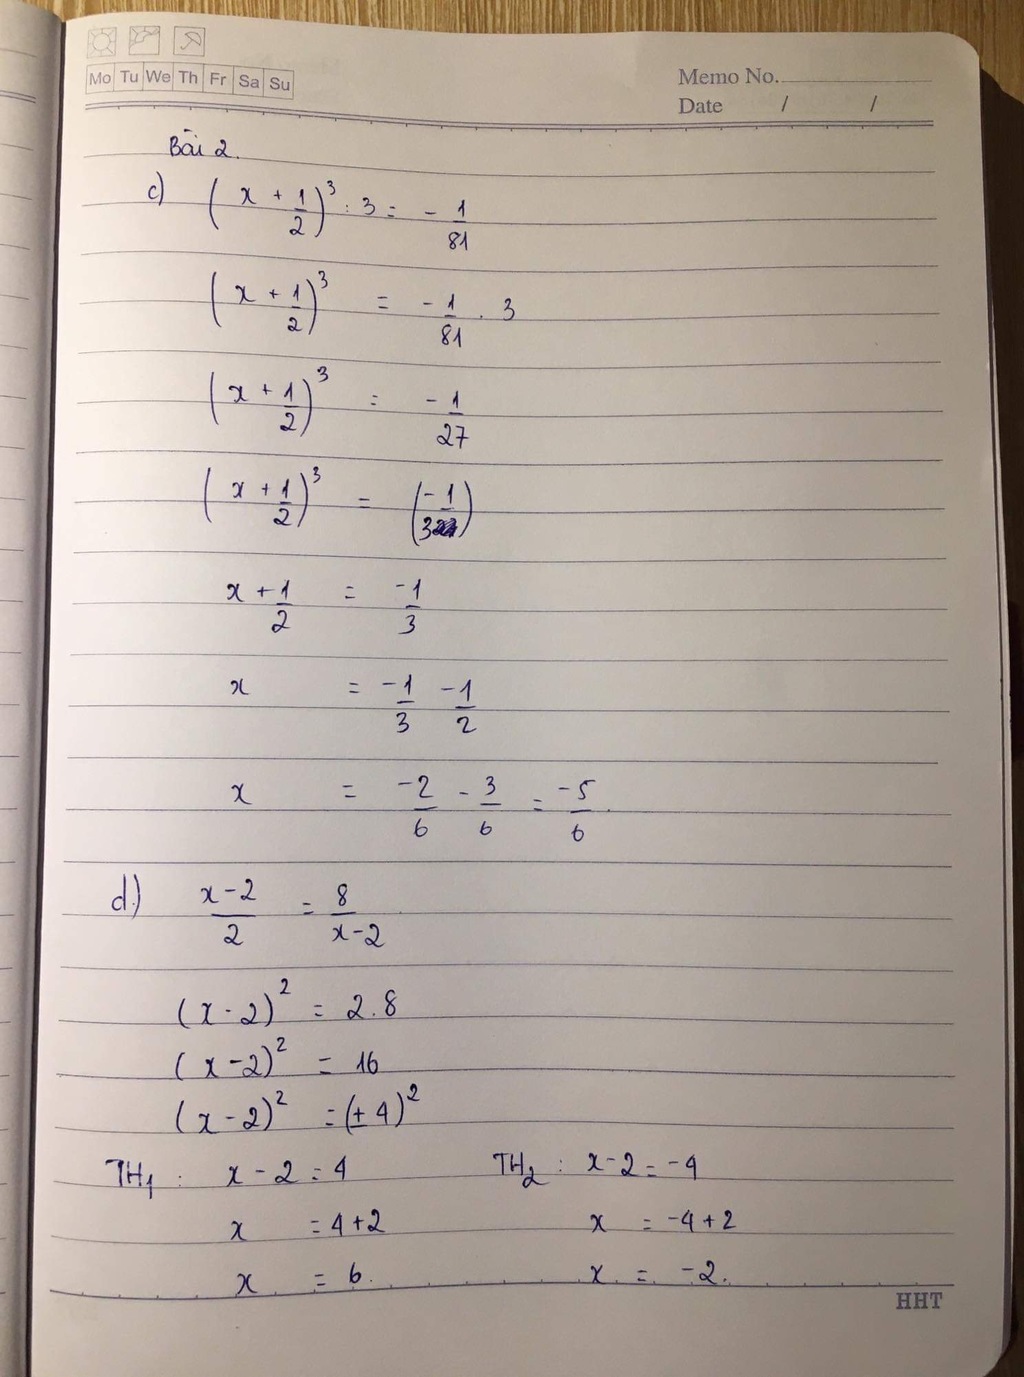 Mo Tu We Th Fr Sa Su
Memo No.
Date / /
Bài 2.
c) (x + 1/2)³ : 3 = - 1/81
(x + 1/2)³ = - 1/81 . 3
(x + 1/2)³ = - 1/27
(x + 1/2)³ = (-1/3)
x + 1/2 = -1/3
x = -1/3 - 1/2
x = -2/6 - 3/6 = -5/6.
d.) x-2/2 = 8/x-2
(x-2)² = 2.8
(x-2)² = 16
(x-2)² = (± 4)²
TH1 : x-2 = 4 TH2 : x-2 = -4
x = 4+2 x = -4+2
x = 6. x = -2.
HHT